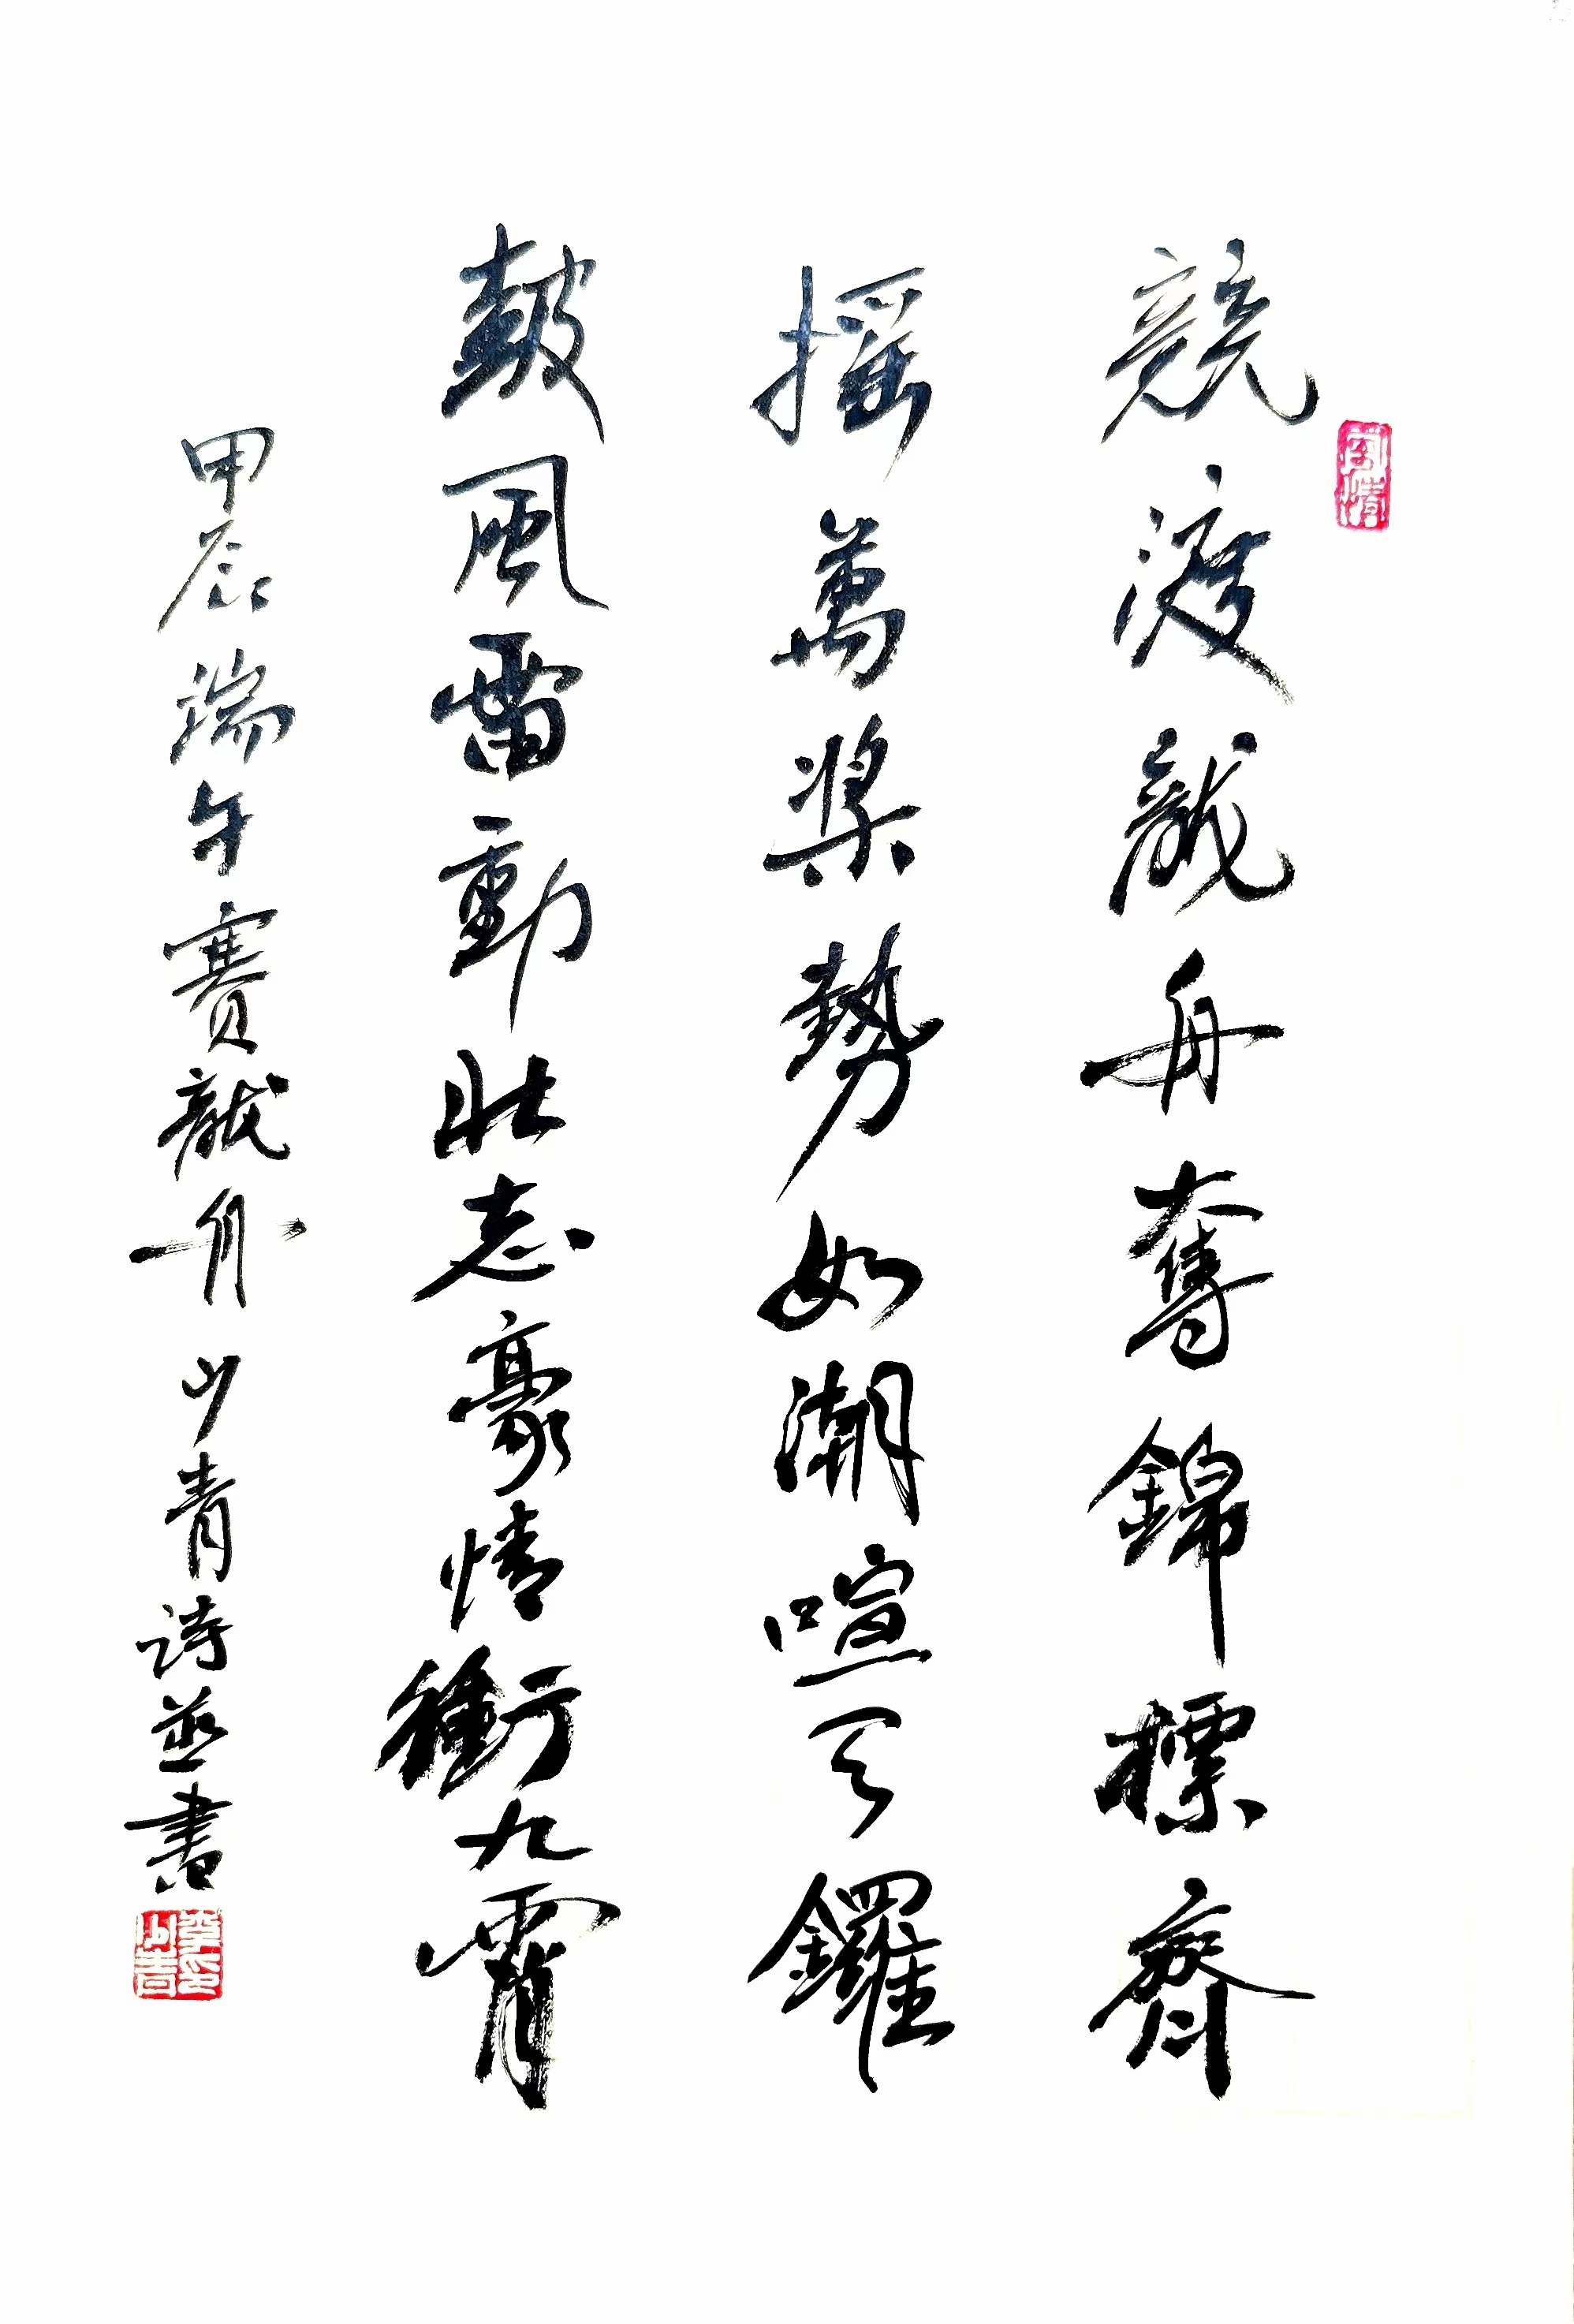 競渡龍舟奪錦標齊
摇萬槳勢如潮喧天鑼
鼓風雷動壯志豪情衝九霄
甲辰端午賽龍舟 山青詩並書